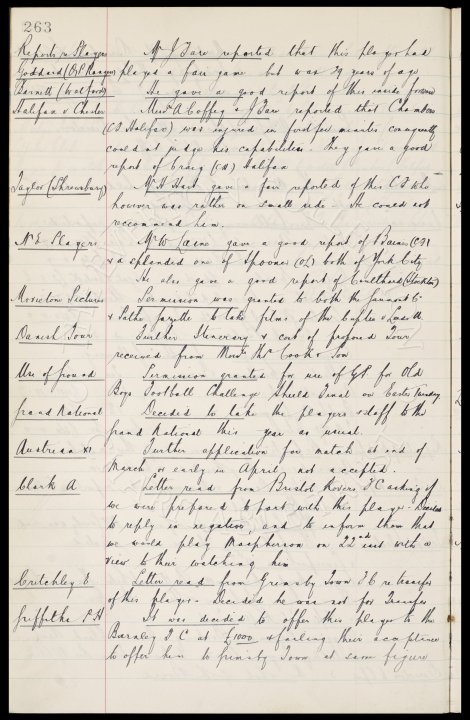 263
Reports re Players Mr J Fare reported that this player had
Goddard (Q P Rangers) played a fair game but was 29 years of age
Barnett (Watford) He gave a good report of this inside forward
Halifax v Chester Messrs A Coffey & J Fare reported that Chambers
(CF Halifax) was injured in first few minutes consequently
could not judge his capabilities. They gave a good
report of Craig (CH) Halifax
Taylor (Shrewsbury) Mr H Hart gave a fair reported of this CF who
however was rather on small side. He could not
recommend him.
N E Players Mr W gave a good report of Baines (CF)
& a splendid one of Spooner (OL) both of York City
He also gave a good report of Coulthard (Stockton)
Movietone Pictures Permission was granted to both the Gaumont Co
& Pathe Gazette to take films of the Cuptie
Danish Tour Further Itinerary & cost of proposed Tour
received from Messrs Thos Cook & Son
Use of Ground Permission granted for use of GP for Old
Boys Football Challenge Shield Final on Easter Tuesday
Grand National Decided to take the players & staff to the
Grand National this year as usual.
Austrian XI Further application for match at end of
March or early in April not accepted.
Clark A Letter read from Bristol Rovers F C asking if
we were prepared to part with this player. Decided
to reply in negative, and to inform them that
we would play Macpherson on 22nd inst with a
view to their watching him
Critchley E Letter read from Grimsby Town F C re transfer
of this player. Decided he was not for Transfer
Griffiths P H It was decided to offer this player to the
Barnsley F C at £1000 & failing their acceptance
to offer him to Grimsby Town at same figure